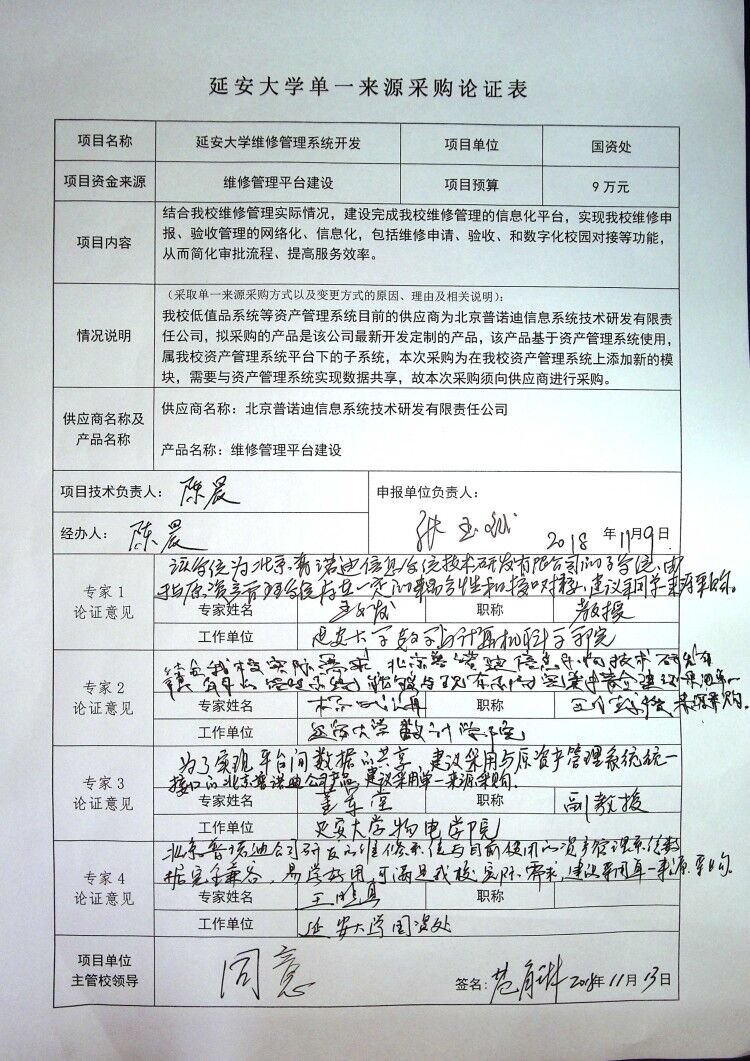 延安大学单一来源采购论证表
项目名称 延安大学维修管理系统开发 项目单位 国资处
项目资金来源 维修管理平台建设 项目预算 9万元
项目内容
结合我校维修管理实际情况，建设完成我校维修管理的信息化平台，实现我校维修申
报、验收管理的网络化、信息化，包括维修申请、验收、和数字化校园对接等功能，
从而简化审批流程、提高服务效率。
情况说明
（采取单一来源采购方式以及变更方式的原因、理由及相关说明）：
我校低值品系统等资产管理系统目前的供应商为北京普诺迪信息系统技术研发有限责
任公司，拟采购的产品是该公司最新开发定制的产品，该产品基于资产管理系统使用，
属我校资产管理系统平台下的子系统，本次采购为在我校资产管理系统上添加新的模
块，需要与资产管理系统实现数据共享，故本次采购须向供应商进行采购。
供应商名称及
产品名称
供应商名称：北京普诺迪信息系统技术研发有限责任公司
产品名称：维修管理平台建设
项目技术负责人： 陈晨 申报单位负责人：
经办人： 陈晨 张 2018 年11月9日
专家 1
论证意见
该系统为北京普诺迪信息系统技术研发有限公司的子系统，由
建议采用单一来源采购。
专家姓名 职称 教授
工作单位 延安大学数学与计算机科学学院
专家 2
论证意见
结合我校实际需求，北京普诺迪信息系统技术研发有
来源采购。
专家姓名 职称
工作单位 延安大学数计学院
专家 3
论证意见
为了实现平台间数据的共享，建议采用与原资产管理系统统一
接口的北京普诺迪公司产品，建议采用单一来源采购。
专家姓名 董军堂 职称 副教授
工作单位 延安大学物电学院
专家 4
论证意见
北京普诺迪公司研发的维修系统与目前使用的资产管理系统数
据完全兼容，易学好用，可满足我校实际需求，建议采用单一来源采购。
专家姓名 王 职称
工作单位 延安大学国资处
项目单位
主管校领导
同意
签名： 2018年11月13日